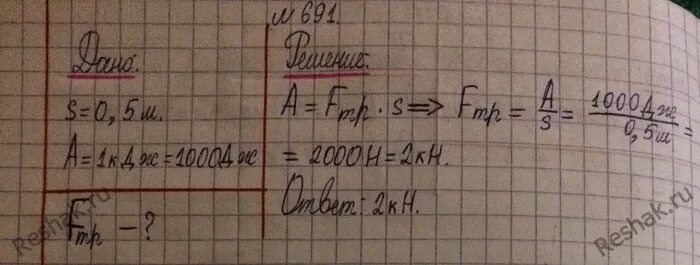 № 691.
Дано:
s = 0,5 м.
A = 1 кДж = 1000 Дж
Fтр – ?
Решение:
A = Fтр · s ⟹ Fтр = A/s = 1000 Дж/0,5 м =
= 2000 Н = 2 кН.
Ответ: 2 кН.
Reshak.ru
Reshak.ru